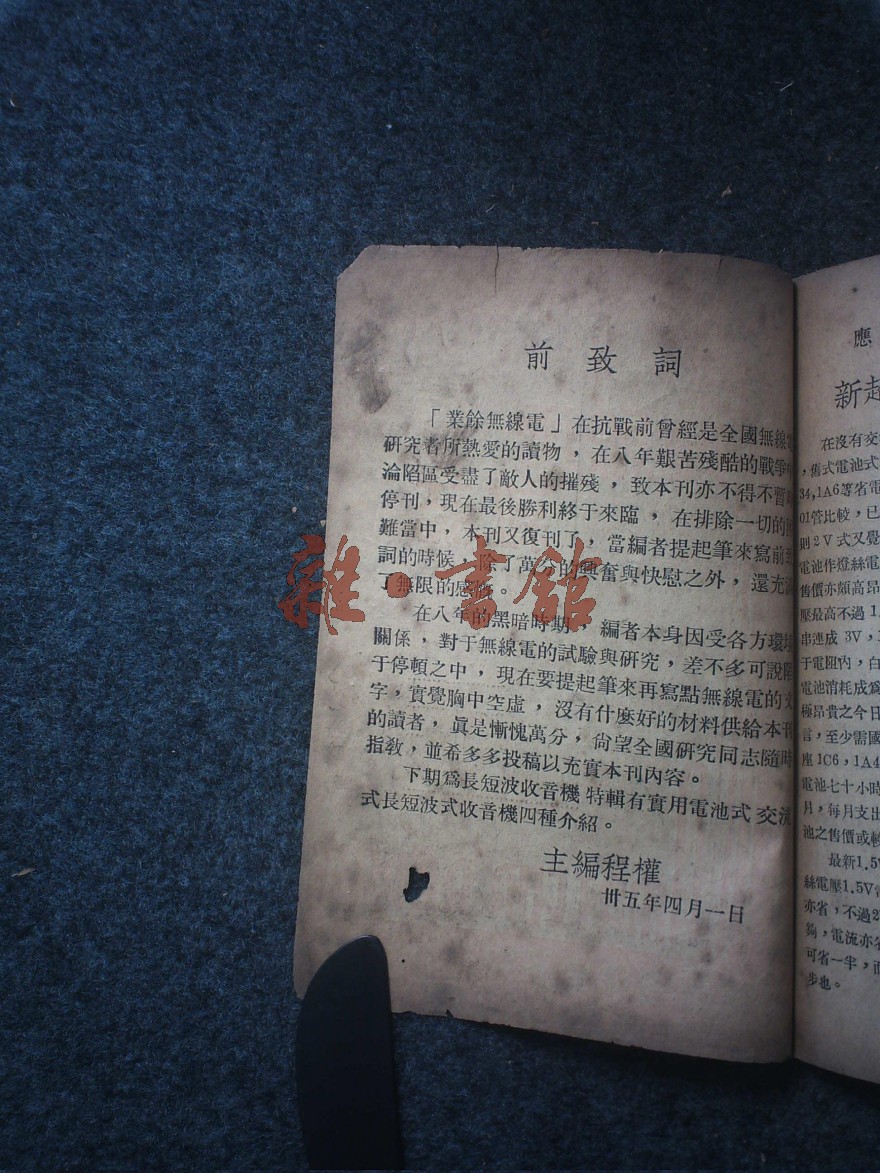 前致詞
「業餘無線電」在抗戰前曾經是全國無線
研究者所熱愛的讀物，在八年艱苦殘酷的戰爭
淪陷區受盡了敵人的摧殘，致本刊亦不得不暫
停刊，現在最後勝利終于來臨，在排除一切的
難當中，本刊又復刊了，當編者提起筆來寫前
詞的時候，除了萬分的興奮與快慰之外，還充
了無限的感。
在八年的黑暗時期，編者本身因受各方環
關係，對于無線電的試驗與研究，差不多可說
于停頓之中，現在要提起筆來再寫點無線電的文
字，實覺胸中空虛，沒有什麼好的材料供給本刊
的讀者，眞是慚愧萬分，尙望全國硏究同志隨時
指教，並希多多投稿以充實本刊內容。
下期爲長短波收音機特輯有實用電池式交流
式長短波式收音機四種介紹。
主編程權
卅五年四月一日
雜·書館
應
新起
在沒有交
，舊式電池式
34,1A6等省電
01管比較，已
則2V式又覺
電池作燈絲電
售價亦頗高昂
壓最高不過1.
串連成3V，
于電阻內，白
電池消耗成爲
極昂貴之今日
言，至少需國
座1C6，1A4
電池七十小時
月，每月支出
池之售價或較
最新1.5V
絲電壓1.5V常
亦省，不過2
夠，電流亦省
可省一半，而
步也。